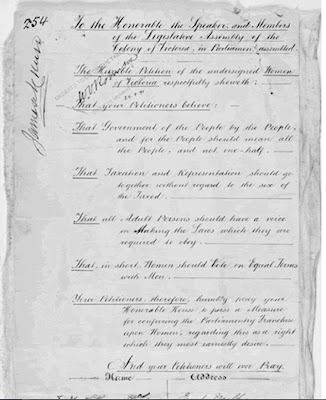 254
To the Honorable the Speaker and Members
of the Legislative Assembly of the
Colony of Victoria, in Parliament assembled.
The Humble Petition of the undersigned Women
of Victoria respectfully sheweth:
That your Petitioners believe:
That Government of the People by the People,
and for the People should mean all
the People, and not one-half.
That Taxation and Representation should go
together without regard to the sex of
the Taxed.
That all Adult Persons should have a voice
in Making the Laws which they are
required to obey.
That, in short, Women should Vote on Equal Terms
with Men.
Your Petitioners, therefore, humbly pray your
Honorable House to pass a Measure
for conferring the Parliamentary Franchise
upon Women, regarding this as a right
which they most earnestly desire.
And your Petitioners will ever Pray.
Name Address